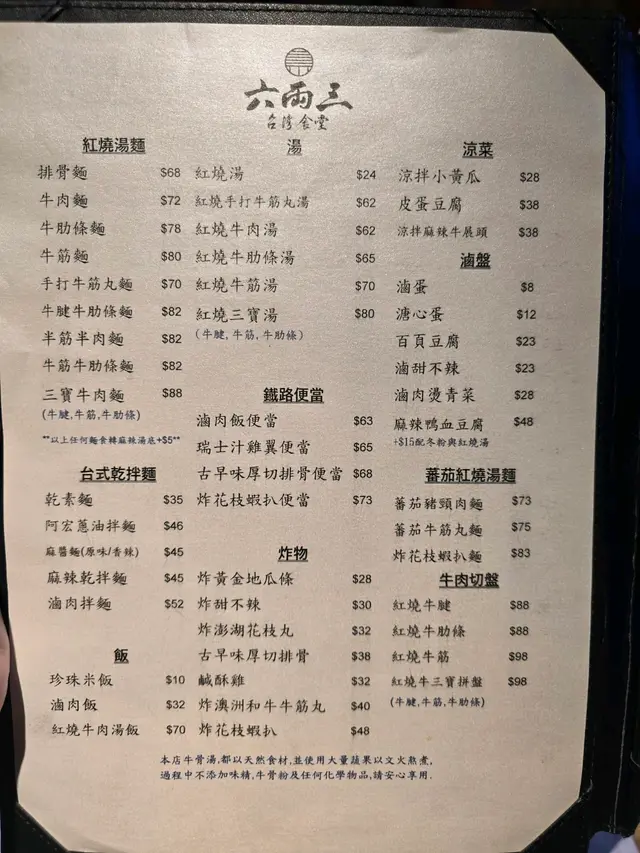 六兩三
台灣食堂
紅燒湯麵
排骨麵 $68
牛肉麵 $72
牛肋條麵 $78
牛筋麵 $80
手打牛筋丸麵 $70
牛腱牛肋條麵 $82
半筋半肉麵 $82
牛筋牛肋條麵 $82
三寶牛肉麵 $88
(牛腱,牛筋,牛肋條)
**以上任何麵食轉麻辣湯底+$5**
台式乾拌麵
乾素麵 $35
阿宏蔥油拌麵 $46
麻醬麵(原味/香辣) $45
麻辣乾拌麵 $45
滷肉拌麵 $52
飯
珍珠米飯 $10
滷肉飯 $32
紅燒牛肉湯飯 $70
湯
紅燒湯 $24
紅燒手打牛筋丸湯 $62
紅燒牛肉湯 $62
紅燒牛肋條湯 $65
紅燒牛筋湯 $70
紅燒三寶湯 $80
(牛腱,牛筋,牛肋條)
鐵路便當
滷肉飯便當 $63
瑞士汁雞翼便當 $65
古早味厚切排骨便當 $68
炸花枝蝦扒便當 $73
炸物
炸黃金地瓜條 $28
炸甜不辣 $30
炸澎湖花枝丸 $32
古早味厚切排骨 $38
鹹酥雞 $32
炸澳洲和牛牛筋丸 $40
炸花枝蝦扒 $48
涼菜
涼拌小黃瓜 $28
皮蛋豆腐 $38
涼拌麻辣牛展頭 $38
滷盤
滷蛋 $8
溏心蛋 $12
百頁豆腐 $23
滷甜不辣 $23
滷肉燙青菜 $28
麻辣鴨血豆腐 $48
+$15配冬粉與紅燒湯
蕃茄紅燒湯麵
蕃茄豬頸肉麵 $73
蕃茄牛筋丸麵 $75
炸花枝蝦扒麵 $83
牛肉切盤
紅燒牛腱 $88
紅燒牛肋條 $88
紅燒牛筋 $98
紅燒牛三寶拼盤 $98
(牛腱,牛筋,牛肋條)
本店牛骨湯,都以天然食材,並使用大量蔬果以文火熬煮,
過程中不添加味精,牛骨粉及任何化學物品,請安心享用.